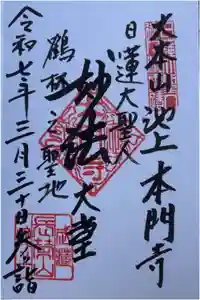 大本山池上本門寺
日蓮大聖人
妙法
大堂
鶴林之聖地
令和七年三月三十日参詣